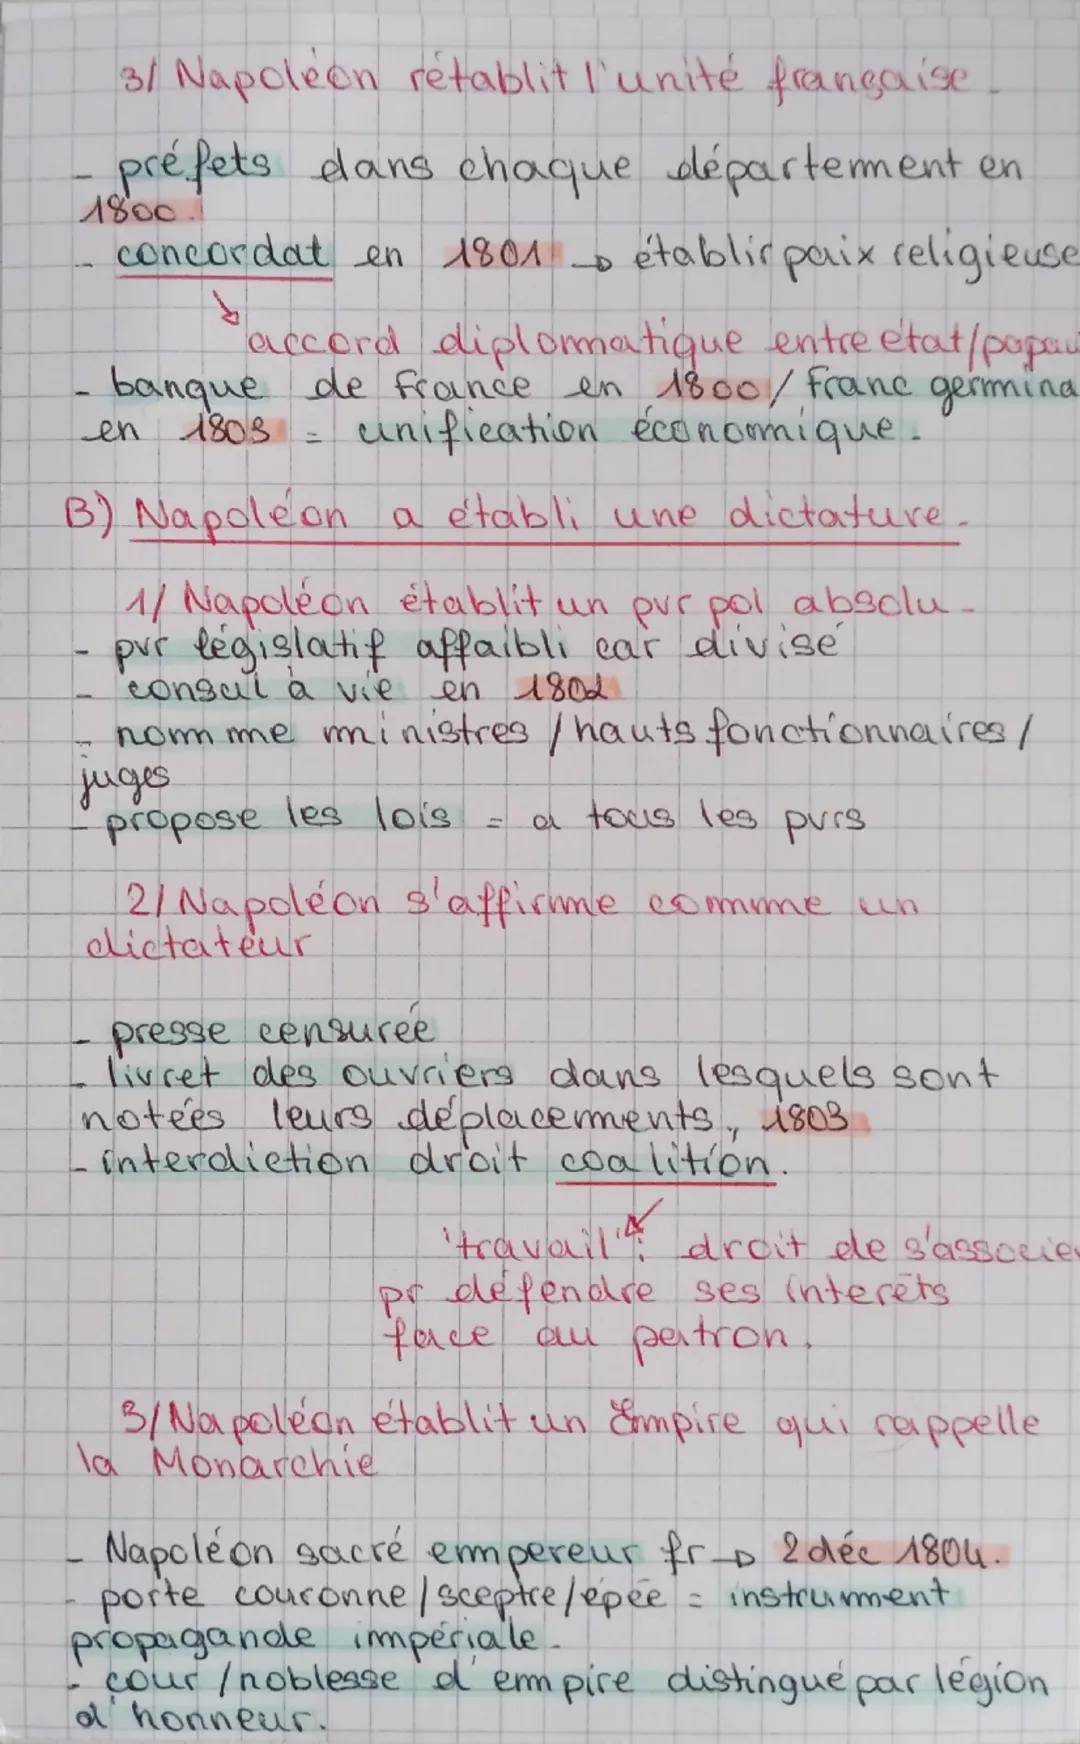 3/ Napoléon rétablit l'unité française.
- préfets dans chaque département en
1800.
- concordat en 1801 → établir paix religieuse
accord diplomatique entre état/papau
- banque de France en 1800/ Franc germina
en 1803 = unification économique.
B) Napoléon a établi une dictature.
1/ Napoléon établit un pvr pol absolu.
- pvr législatif affaibli car divisé
- consul à vie en 1802
- nomme ministres / hauts fonctionnaires /
juges
- propose les lois = a tous les pvrs
2/ Napoléon s'affirme comme un
dictateur
- presse censurée
- livret des ouvriers dans lesquels sont
notées leurs déplacements, 1803
- interdiction droit coalition.
'travail': droit de s'associer
pr défendre ses interêts
face au patron.
3/ Napoléon établit un Empire qui rappelle
la Monarchie
- Napoléon sacré empereur fr → 2 déc 1804.
- porte couronne / sceptre / épée = instrument
propagande impériale.
- cour / noblesse d'empire distingué par légion
d'honneur.